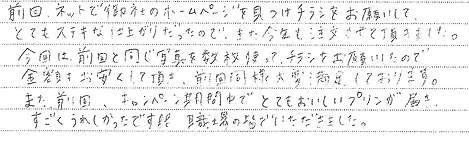 前回、ネットで御社のホームページを見つけチラシをお願いして、
とてもステキな仕上がりだったので、また今年も注文させて頂きました。
今回は、前回と同じ写真を数枚使って、チラシをお願いしたので
金額もお安くして頂き、前回同様大変満足しております。
また前回、キャンペーン期間中でとてもおいしいプリンが届き、
すごくうれしかったです!! 職場の皆でいただきました。